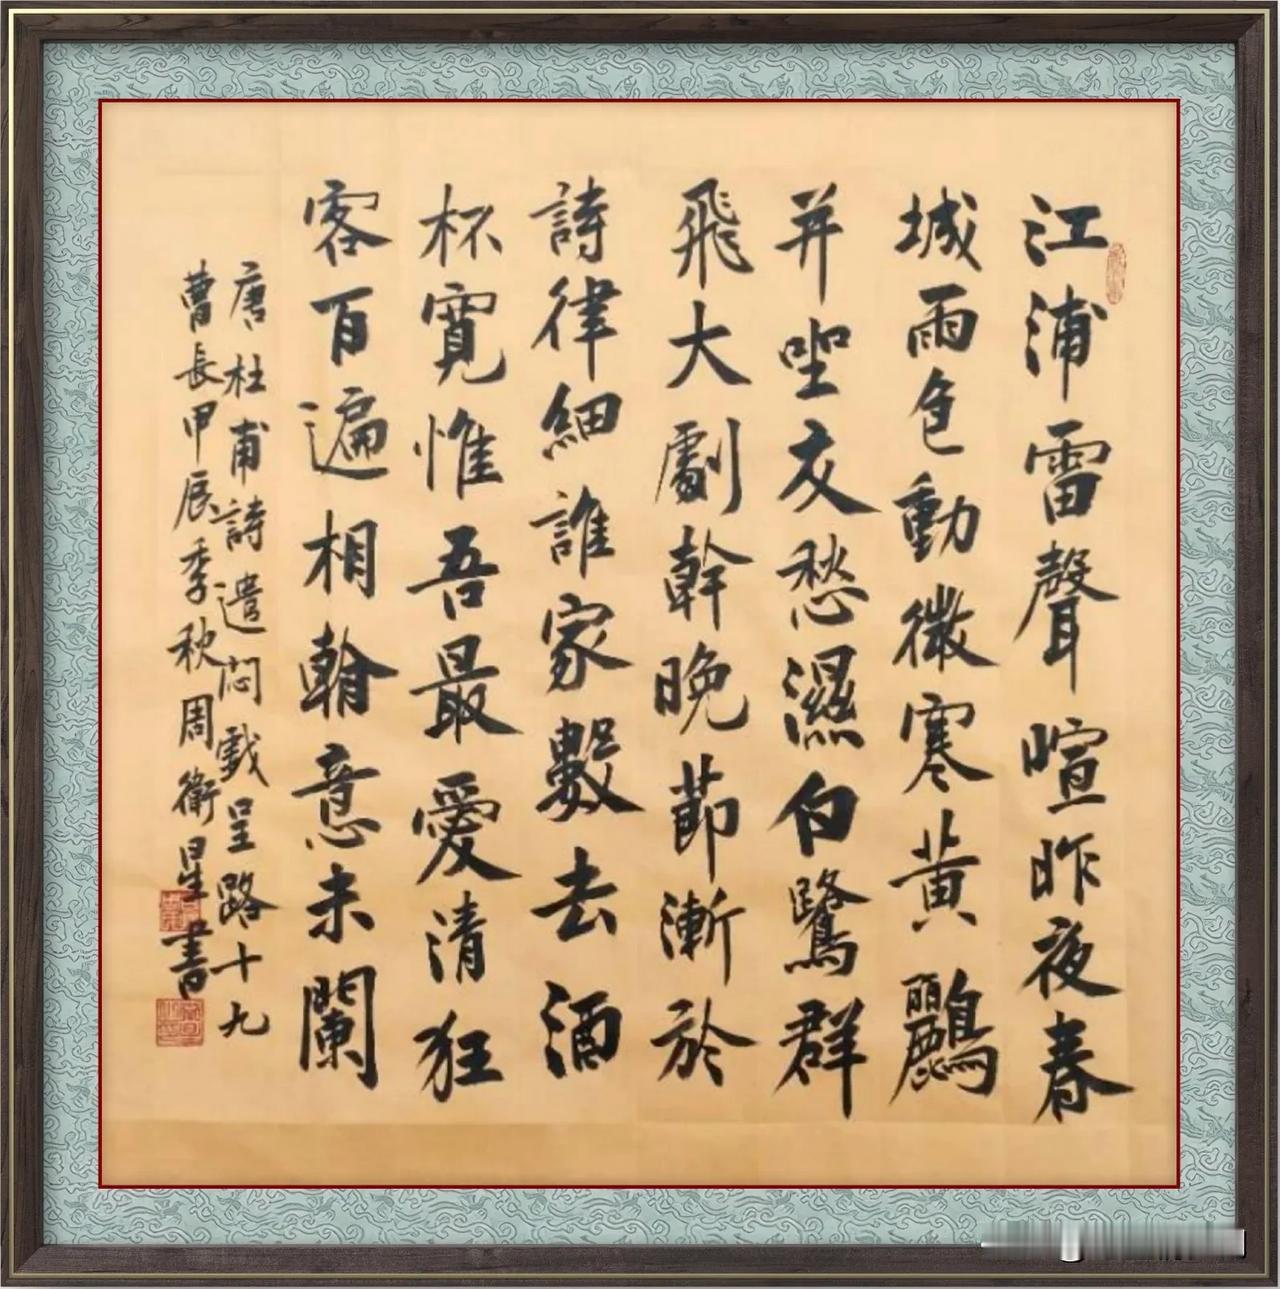 江浦雷聲喧昨夜春
城雨色動微寒黃鸝
并坐交愁濕白鷺群
飛大劇幹晚節漸於
詩律細誰家數去酒
杯寬惟吾最愛清狂
客百遍相看意未闌
唐杜甫詩遣闷戲呈路十九
曹長甲辰季秋周衛星書